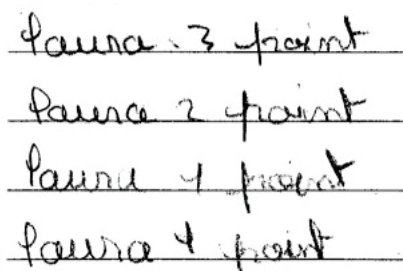 laura 3 point
laura 2 point
laura 1 point
laura 1 point